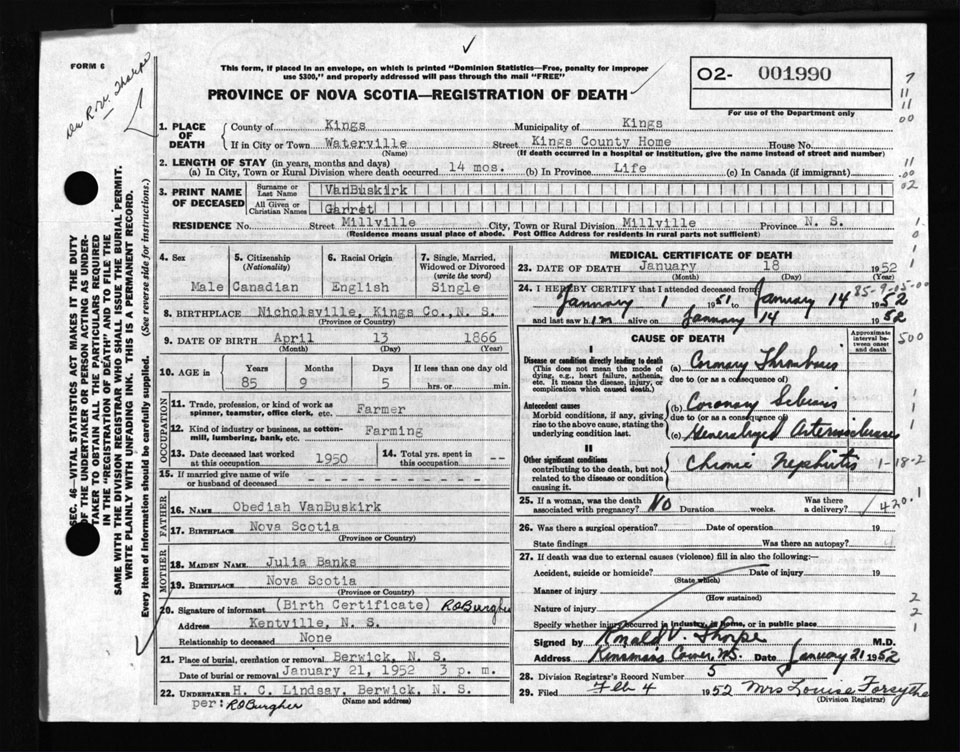 FORM 6
Dr R.W. Thorpe
This form, if placed in an envelope, on which is printed "Dominion Statistics—Free, penalty for improper
use $300," and properly addressed will pass through the mail "FREE"
PROVINCE OF NOVA SCOTIA—REGISTRATION OF DEATH
02- 001990
For use of the Department only
1. PLACE OF DEATH
County of Kings Municipality of Kings
If in City or Town Waterville Street Kings County Home House No.
(Name) (If death occurred in a hospital or institution, give the name instead of street and number)
2. LENGTH OF STAY (in years, months and days)
(a) In City, Town or Rural Division where death occurred 14 mos. (b) In Province Life (c) In Canada (if immigrant)
3. PRINT NAME OF DECEASED
Surname or Last Name VanBuskirk
All Given or Christian Names Garret
RESIDENCE No. Street Millville City, Town or Rural Division Millville Province N. S.
(Residence means usual place of abode. Post Office Address for residents in rural parts not sufficient)
4. Sex 5. Citizenship (Nationality) 6. Racial Origin 7. Single, Married, Widowed or Divorced (write the word)
Male Canadian English Single
8. BIRTHPLACE Nicholsville, Kings Co., N. S.
(Province or Country)
9. DATE OF BIRTH April 13 1866
(Month) (Day) (Year)
10. AGE in Years Months Days If less than one day old
85 9 5 hrs. or min.
OCCUPATION
11. Trade, profession, or kind of work as spinner, teamster, office clerk, etc. Farmer
12. Kind of industry or business, as cotton-mill, lumbering, bank, etc. Farming
13. Date deceased last worked at this occupation 1950 14. Total yrs. spent in this occupation --
15. If married give name of wife or husband of deceased - - - - - - - - - - -
FATHER
16. NAME Obediah VanBuskirk
17. BIRTHPLACE Nova Scotia
(Province or Country)
MOTHER
18. MAIDEN NAME Julia Banks
19. BIRTHPLACE Nova Scotia
(Province or Country)
20. Signature of informant (Birth Certificate) ROBurgher
Address Kentville, N. S.
Relationship to deceased None
21. Place of burial, cremation or removal Berwick, N. S.
Date of burial or removal January 21, 1952 3 p. m.
22. UNDERTAKER H. C. Lindsay, Berwick, N. S.
per: ROBurgher (Name and address)
MEDICAL CERTIFICATE OF DEATH
23. DATE OF DEATH January 18 1952
(Month) (Day) (Year)
24. I HEREBY CERTIFY that I attended deceased from 85-9-05-00
January 1 1951 to January 14 1952
and last saw him alive on January 14 1952
CAUSE OF DEATH
Approximate interval between onset and death
I
Disease or condition directly leading to death
(This does not mean the mode of dying, e.g., heart failure, asthenia, etc. It means the disease, injury, or complication which caused death.)
(a) Coronary Thrombosis
due to (or as a consequence of)
Antecedent causes
Morbid conditions, if any, giving rise to the above cause, stating the underlying condition last.
(b) Coronary Sclerosis
due to (or as a consequence of)
(c) Generalized Arteriosclerosis
II
Other significant conditions
contributing to the death, but not related to the disease or condition causing it.
Chronic Nephritis
500
1-18-2
420.1
25. If a woman, was the death associated with pregnancy? No Duration weeks. Was there a delivery?
26. Was there a surgical operation? Date of operation 19
State findings Was there an autopsy?
27. If death was due to external causes (violence) fill in also the following:
Accident, suicide or homicide? Date of injury 19
(State which)
Manner of injury
(How sustained)
Nature of injury
Specify whether injury occurred in industry, in home, or in public place
Signed by Ronald V. Thorpe M.D.
Address Kinsmans Corner, N.S. Date January 21 1952
28. Division Registrar's Record Number 5
29. Filed Feb 4 1952 Mrs Louise Forsythe
(Division Registrar)
SEC. 46—VITAL STATISTICS ACT MAKES IT THE DUTY
OF THE UNDERTAKER OR PERSON ACTING AS UNDER-
TAKER TO OBTAIN ALL THE PARTICULARS REQUIRED
IN THE "REGISTRATION OF DEATH" AND TO FILE THE
SAME WITH THE DIVISION REGISTRAR WHO SHALL ISSUE THE BURIAL PERMIT.
WRITE PLAINLY WITH UNFADING INK. THIS IS A PERMANENT RECORD.
Every item of information should be carefully supplied. (See reverse side for instructions.)